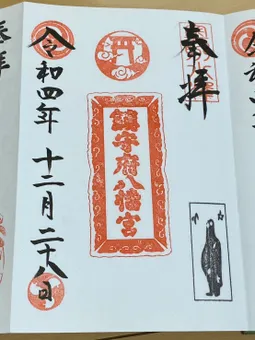 奉拝
鎮守府八幡宮
令和四年 十二月二十八日
奉拝